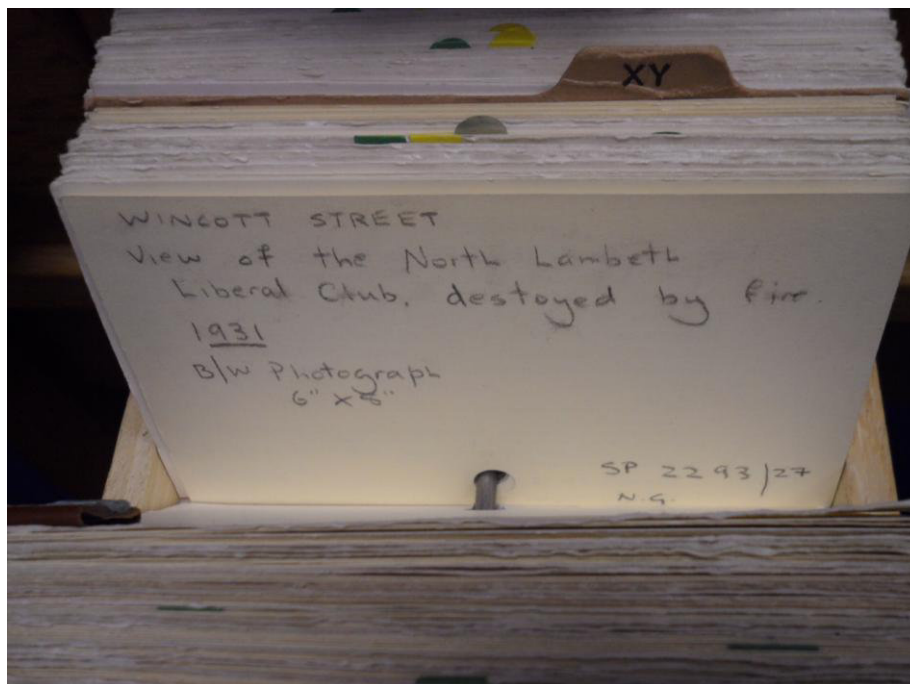 XY
WINCOTT STREET
View of the North Lambeth
Liberal Club, destoyed by fire.
1931
B/W Photograph
6" x 8"
SP 2293/27
N.G.